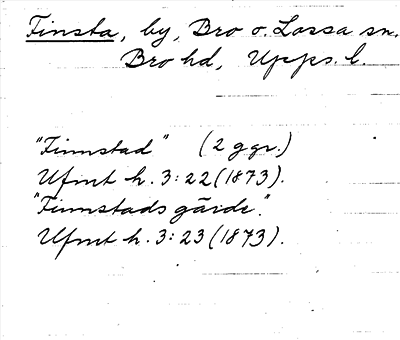 Finsta, by, Bro o. Lossa sn.
Bro hd, Upps. l.
"Finnstad" (2 ggr.)
Ufmt h. 3:22 (1873).
"Finnstads gärde".
Ufmt h. 3:23 (1873).